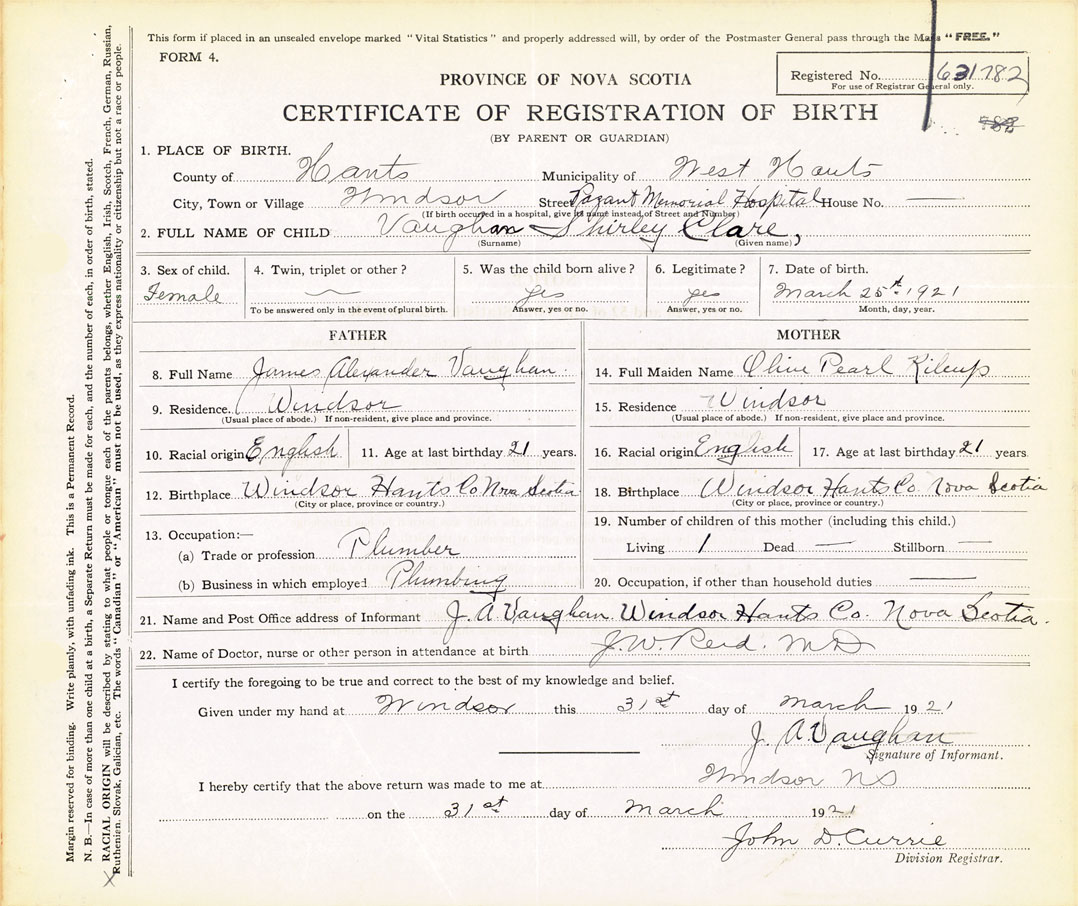 This form if placed in an unsealed envelope marked "Vital Statistics" and properly addressed will, by order of the Postmaster General pass through the Mails "FREE."
FORM 4.
PROVINCE OF NOVA SCOTIA
Registered No. 631782
For use of Registrar General only.
CERTIFICATE OF REGISTRATION OF BIRTH
(BY PARENT OR GUARDIAN)
1. PLACE OF BIRTH.
County of Hants Municipality of West Hants
City, Town or Village Windsor Street Pazant Memorial Hospital House No. —
(If birth occured in a hospital, give its name instead of Street and Number)
2. FULL NAME OF CHILD Vaughan - Shirley Clare,
(Surname) (Given name)
3. Sex of child. 4. Twin, triplet or other? 5. Was the child born alive? 6. Legitimate? 7. Date of birth.
Female — yes yes March 25th 1921
To be answered only in the event of plural birth. Answer, yes or no. Answer, yes or no. Month, day, year.
FATHER MOTHER
8. Full Name James Alexander Vaughan. 14. Full Maiden Name Olive Pearl Kilcup
9. Residence Windsor 15. Residence Windsor
(Usual place of abode.) If non-resident, give place and province. (Usual place of abode.) If non-resident, give place and province.
10. Racial origin English 11. Age at last birthday 21 years. 16. Racial origin English 17. Age at last birthday 21 years
12. Birthplace Windsor Hants Co Nova Scotia 18. Birthplace Windsor Hants Co. Nova Scotia
(City or place, province or country.) (City or place, province or country.)
13. Occupation:— 19. Number of children of this mother (including this child.)
(a) Trade or profession Plumber Living 1 Dead — Stillborn —
(b) Business in which employed Plumbing 20. Occupation, if other than household duties —
21. Name and Post Office address of Informant J. A. Vaughan Windsor Hants Co. Nova Scotia.
22. Name of Doctor, nurse or other person in attendance at birth J. W. Reid. MD
I certify the foregoing to be true and correct to the best of my knowledge and belief.
Given under my hand at Windsor this 31st day of March 1921
J. A. Vaughan
Signature of Informant.
I hereby certify that the above return was made to me at Windsor NS
on the 31st day of March 1921
John D. Currie
Division Registrar.
Margin reserved for binding. Write plainly, with unfading ink. This is a Permanent Record.
N. B.—In case of more than one child at a birth, a Separate Return must be made for each, and the number of each, in order of birth, stated.
X RACIAL ORIGIN will be described by stating to what people or tongue each of the parents belongs, whether English, Irish, Scotch, French, German, Russian,
Ruthenian. Slovak, Galician, etc. The words "Canadian" or "American" must not be used, as they express nationality or citizenship but not a race or people.